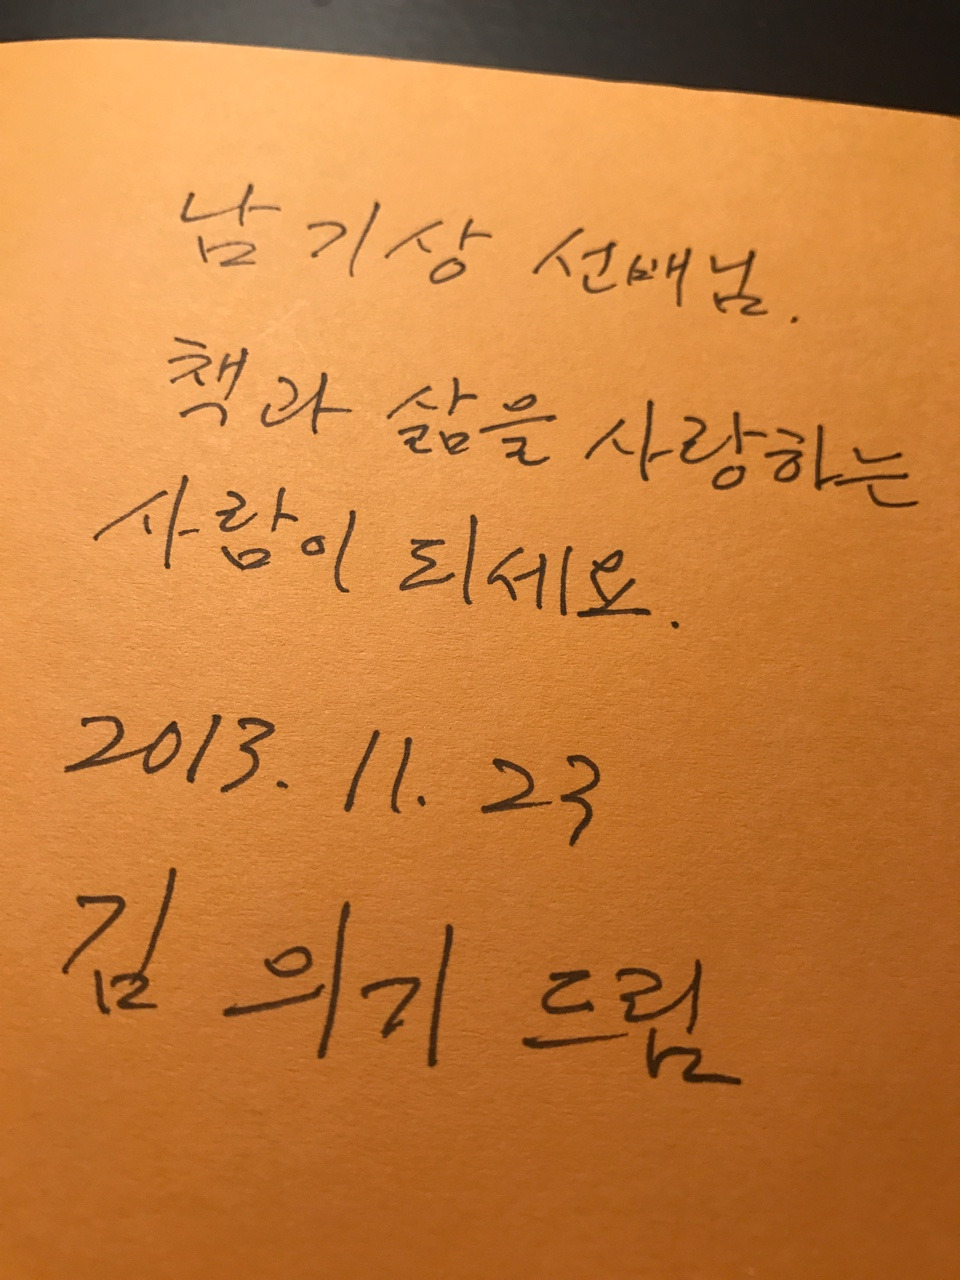 남기상 선배님.
책과 삶을 사랑하는
사람이 되세요.
2013. 11. 23
김 의기 드림